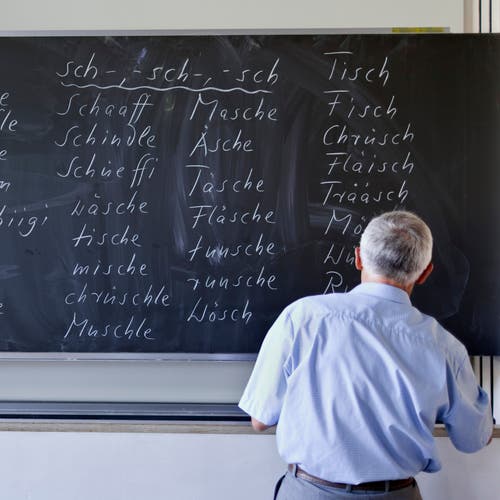 sch-, -sch-, -sch
Schaaff
Schindle
Schüeffi
wäsche
tische
mische
chrüschle
Muschle
Masche
Äsche
Täsche
Fläsche
tuusche
ruusche
Wösch
Tisch
Fisch
Chrüsch
Fläisch
Trääsch